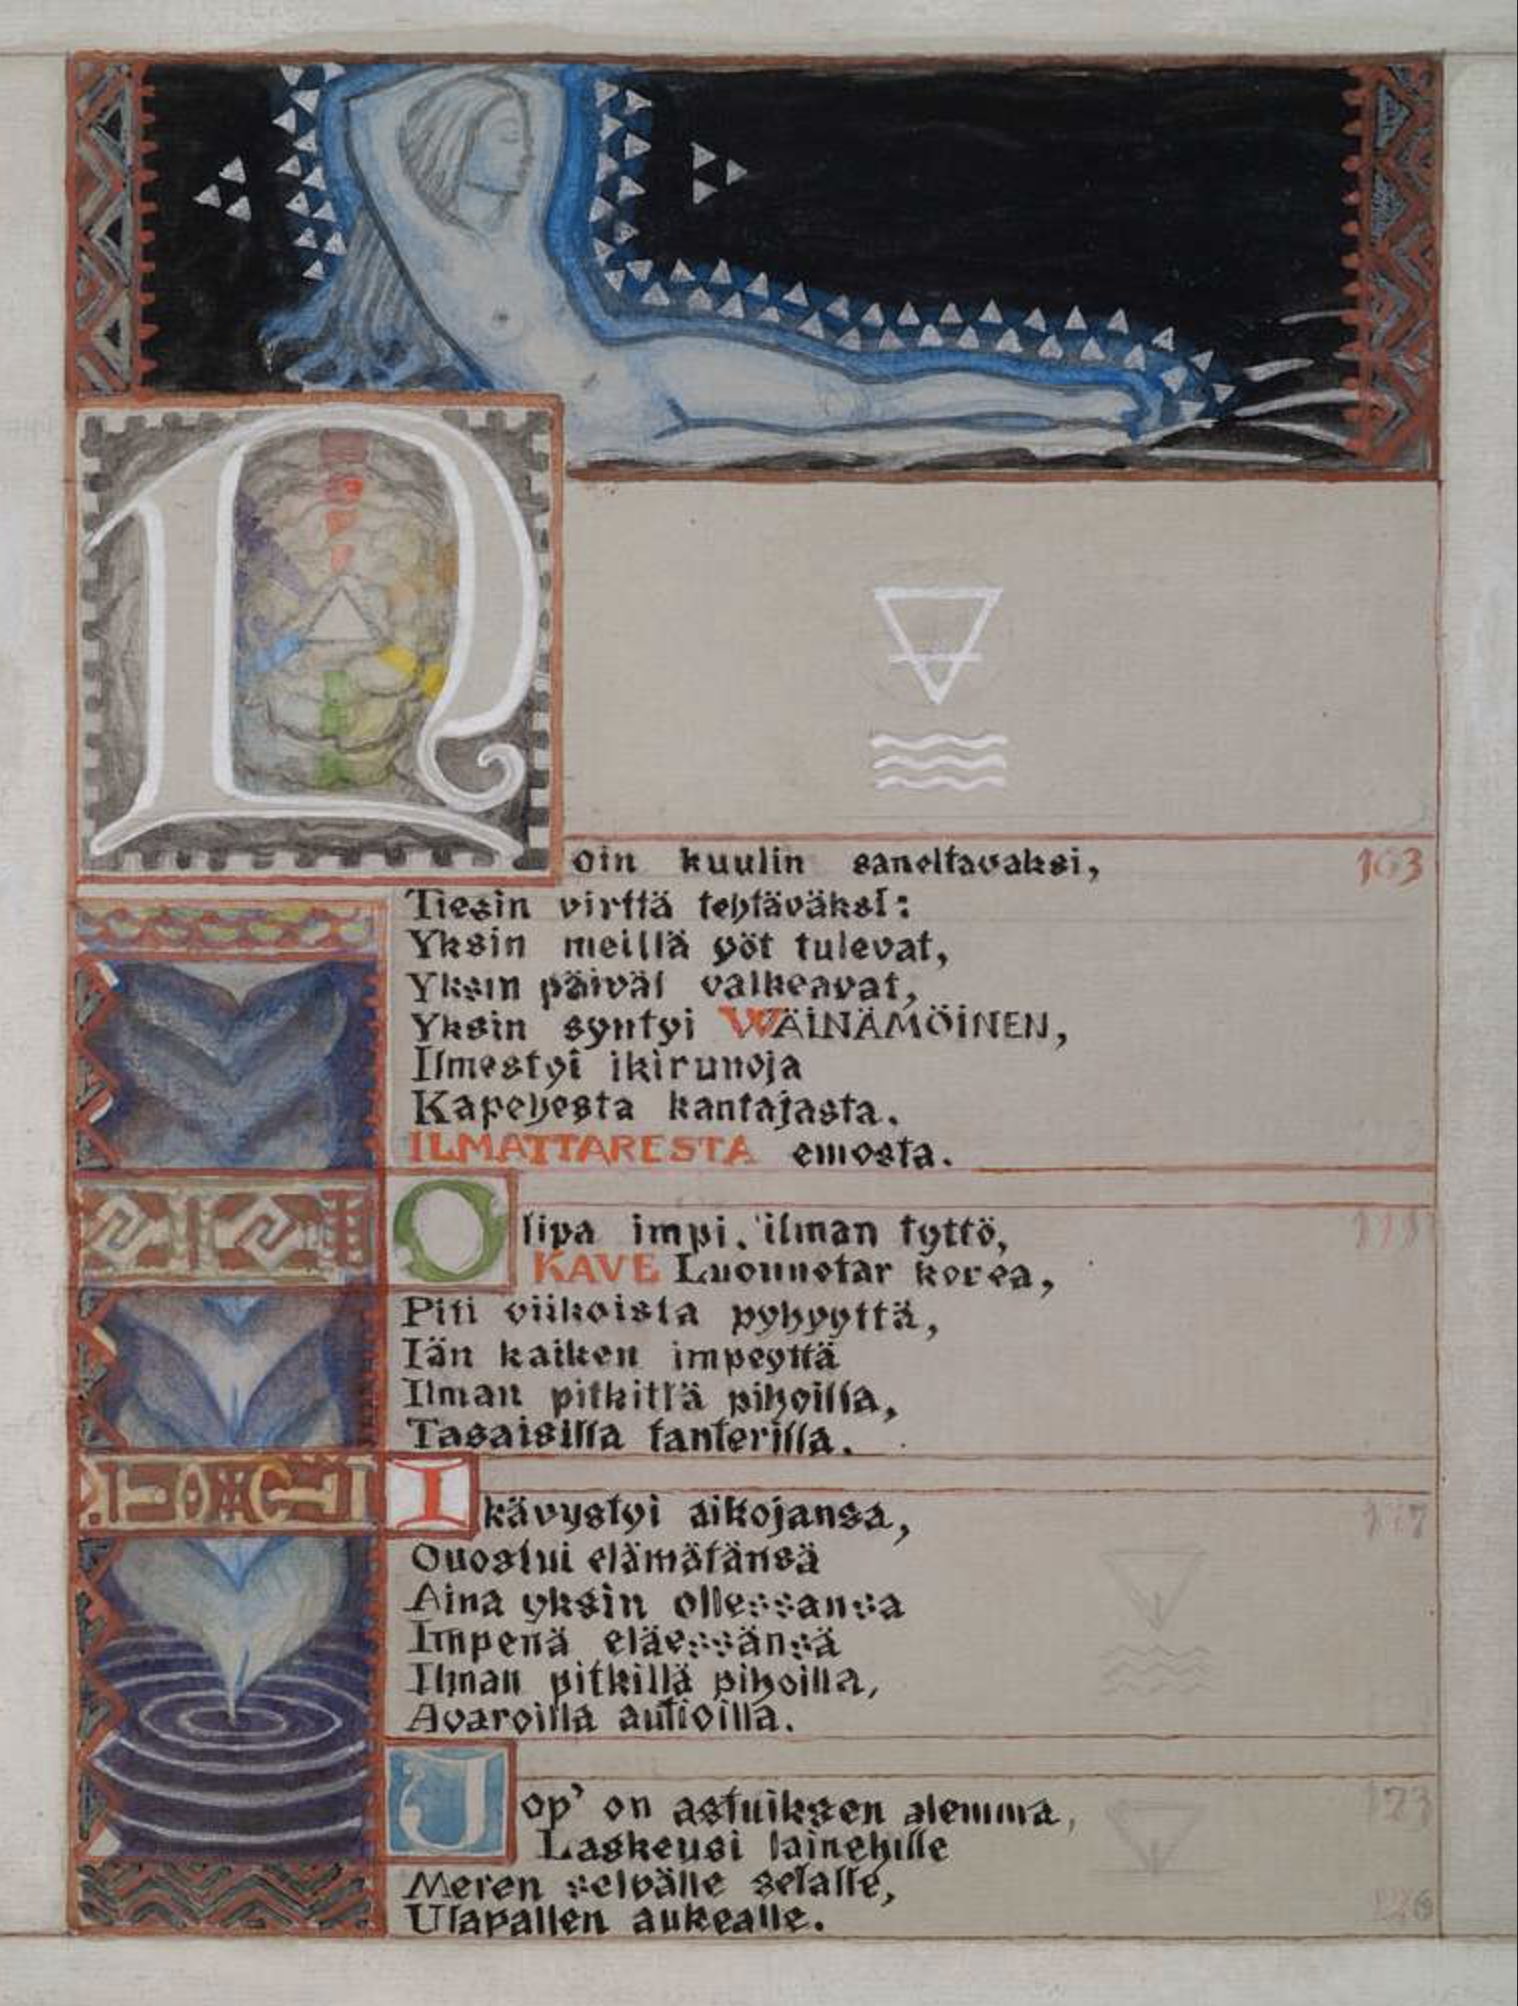 Noin kuulin saneltavaksi, 103
Tiesin virttä tehtäväksi:
Yksin meillä yöt tulevat,
Yksin päivät valkeavat,
Yksin syntyi WÄINÄMÖINEN,
Ilmestyi ikirunoja
Kapehesta kantajasta.
ILMATTARESTA emosta.
Olipa impi, ilman tyttö,
KAVE Luonnotar korea,
Piti viikoista pyhyyttä,
Iän kaiken impeyttä
Ilman pitkillä pihoilla,
Tasaisilla tanterilla.
Ikävystyi aikojansa, 117
Ouostui elämätänsä
Aina yksin ollessansa
Impenä eläessänsä
Ilman pitkillä pihoilla,
Avaroilla autioilla.
Jop' on astuiksen alemma, 123
Laskeusi lainehille
Meren selvälle selälle,
Ulapallen aukealle.